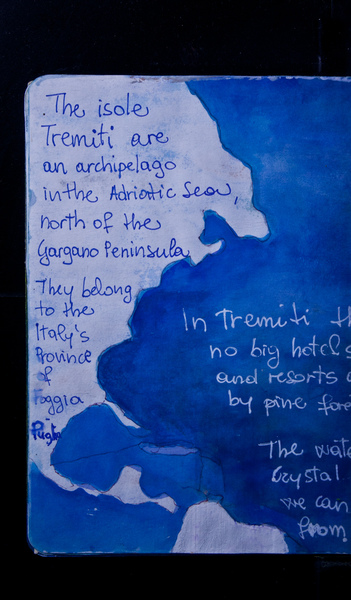 . The isole
Tremiti are
an archipelago
in the Adriatic Sea,
north of the
Gargano Peninsula
They belong
to the
Italy's
Province
of
Foggia
Puglia
In Tremiti
no big hotels
and resorts
by pine
The
Crystal
we can
from